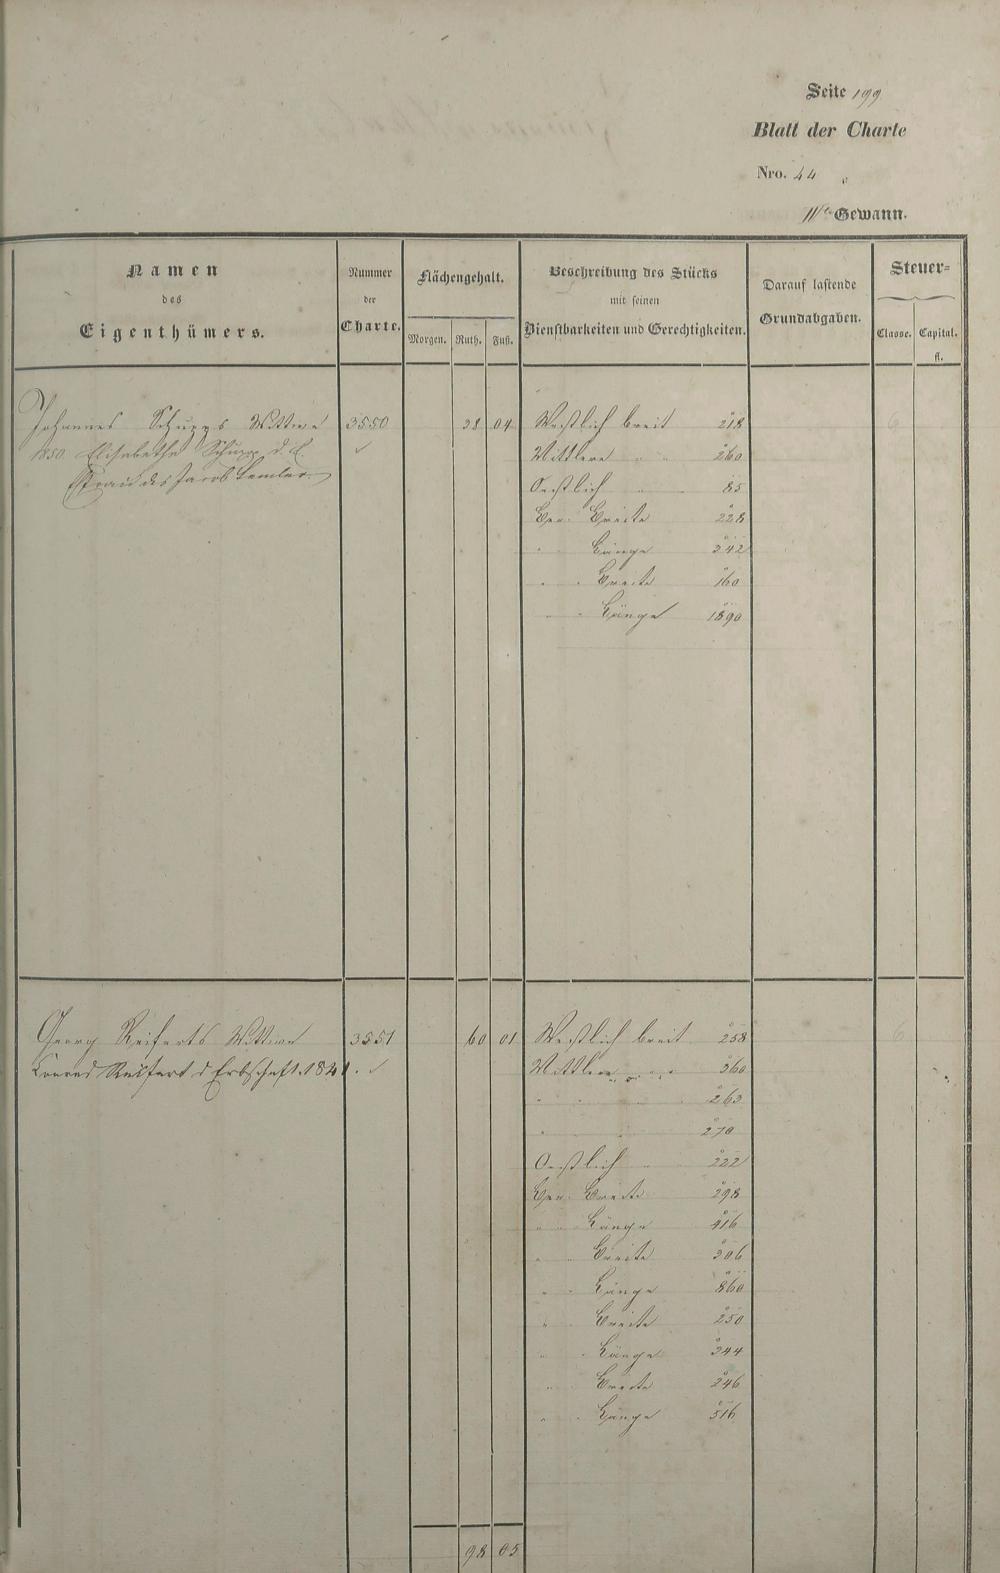 Seite 199
Blatt der Charte
Nro. 44
Gewann.
Namen
des
Eigenthümers.
Nummer
der
Charte.
Flächengehalt.
Morgen. Ruth. Fuß.
Beschreibung des Stücks
mit seinen
Dienstbarkeiten und Gerechtigkeiten.
Darauf lastende
Grundabgaben.
Steuer=
Classe. Capital.
fl.
Johannes Schupps Wittwe 3550 38 04 Westlich breit 218
1850 Elisabetha Schupp d. E. ✓ Mittlere " " 260
Efrau des Jacob Oestlich " 85
Gen. Breite 228
" Länge 342
" " Breite 160
" " Länge 1890
Georg Reiferts Wittwe 3551 60 01 Westlich breit 258 6
Conrad Reifert d Erbschaft 1841. ✓ Mittlere " " 360
" " " 263
" " 270
Oestlich " 222
Gen. Breite 298
" " Länge 416
" " Breite 306
" " Länge 860
" Breite 250
" " Länge 344
" " Breite 246
" " Länge 516
98 05